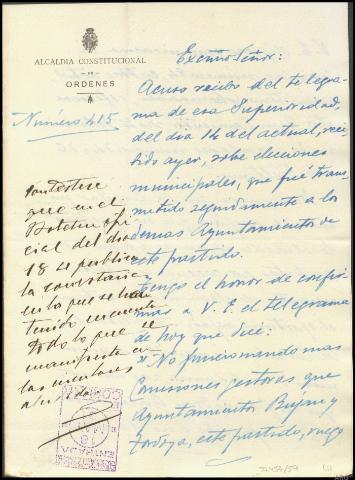 ALCALDIA CONSTITUCIONAL
DE
ORDENES
Número 415
Excmo Señor:
Acuso recibo del telegra-
ma de esa Superioridad,
del dia 14 del actual, reci-
bido ayer, sobre elecciones
municipales, que fué trans-
mitido seguidamente a los
demas Ayuntamientos de
este partido.
Tengo el honor de confir-
mar a V. E. el telegrama
de hoy que dice:
"No funcionando mas
Comisiones gestoras que
Ayuntamientos Buján y
Tordoya, este partido, ruego
Contéstese
que en el
Boletin ofi-
cial del dia
18 se publica
la
en la que se han
tenido en cuenta
todo lo que se
manifiesta en
las
18
ENTRADA
31454/59